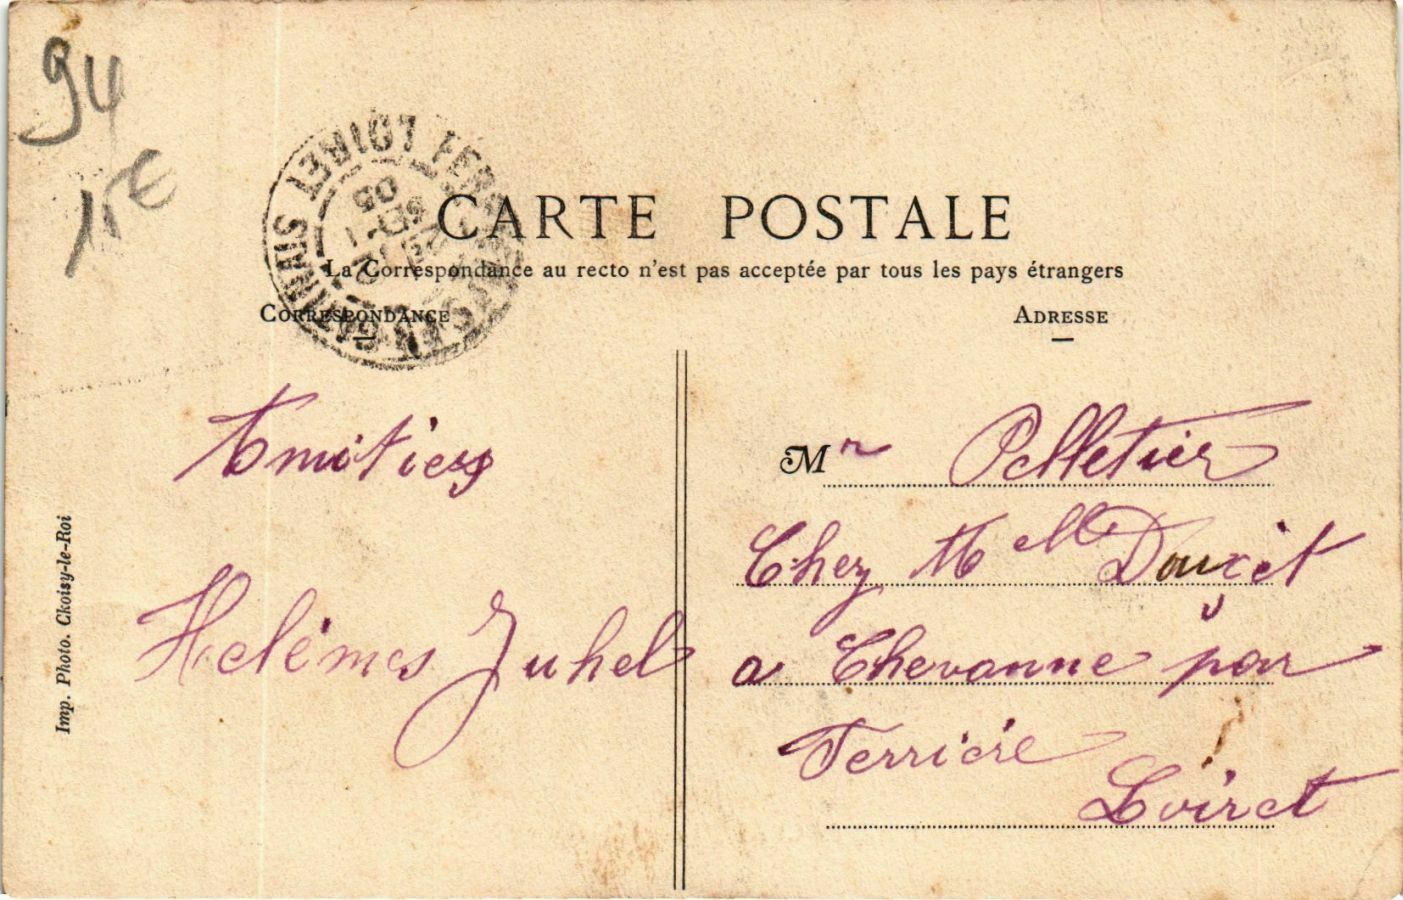 94
15€
CARTE POSTALE
La Correspondance au recto n'est pas acceptée par tous les pays étrangers
CORRESPONDANCE
ADRESSE
LOIRET
05
Amitiés
Helémes Juhel
Mr Pelletier
Chez Melle Doucet
a Chevanne par
Ferriére
Loiret
Imp. Photo. Ckoisy-le-Roi